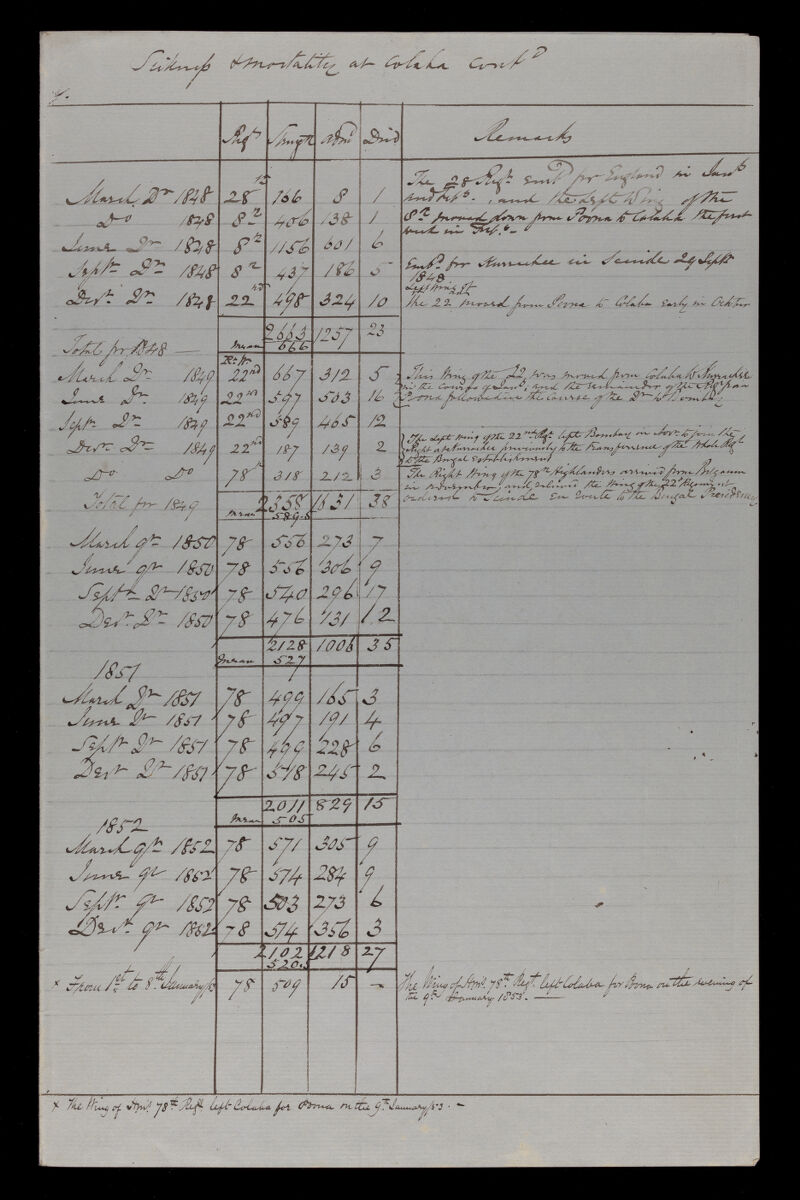 Sickness & mortality at Colaba Contd
Regt Strength Admd Died Remarks
March Qr 1848 28th 166 8 1
The 28 Regt Embd for England in Jany
and Feby. and the left Wing of the
Do 1848 8th 406 138 1
8th moved down from Poona to Colaba the first
week in Feby.
June Qr 1848 8th 1156 601 6
Septr Qr 1848 8th 437 186 5
Embd for Kurrachee in Scinde 29 Septr
1848
Decr Qr 1848 22nd 498 324 10
Left Wing of
the 22nd moved from Poona to Colaba early in October
2663 1257 23
Total for 1848 — mean 666
Rt Wg
March Qr 1849 22nd 667 312 5
This Wing of the 22 was moved from Colaba to Kurrachee
in the course of Jany, and the remainder of the Regt from
June Qr 1849 22nd 597 503 16
Poona followed in the Course of the Qr to Bombay
Septr Qr 1849 22nd 589 465 12
Decr Qr 1849 22nd 187 139 2
The Left Wing of the 22nd Regt left Bombay in Novr to join the
Right at Kurrachee previously to the transference of the Whole Regt
to the Bengal Establishment
Do Do 78th 318 212 3
The Right Wing of the 78th Highlanders arrived from Belgaum
in November, and relieved the Wing of the 22d Regiment
ordered to Scinde en route to the Bengal Presidency
Total for 1849 2358 1631 38
mean 589.5
March qr 1850 78 556 273 7
June qr 1850 78 556 306 9
Septr Qr 1850 78 540 296 17
Decr Qr 1850 78 476 131 12
2128 1006 35
mean 527
1851
March Qr 1851 78 499 165 3
June Qr 1851 78 497 191 4
Septr Qr 1851 78 499 228 6
Decr Qr 1851 78 518 245 2
2011 829 15
mean 505
1852
March qr 1852 78 571 305 9
June qr 1852 78 574 284 9
Septr qr 1852 78 503 273 6
Decr qr 1852 78 574 356 3
2102 1218 27
520.5
x From 1st to 8th January /53 78 509 15 -
The Wing of Hms. 78th Regt. left Colaba for Poona on the evening of
the 9th January 1853. —
x The Wing of Hms. 78th Regt left Colaba for Poona on the 9th January /53. —